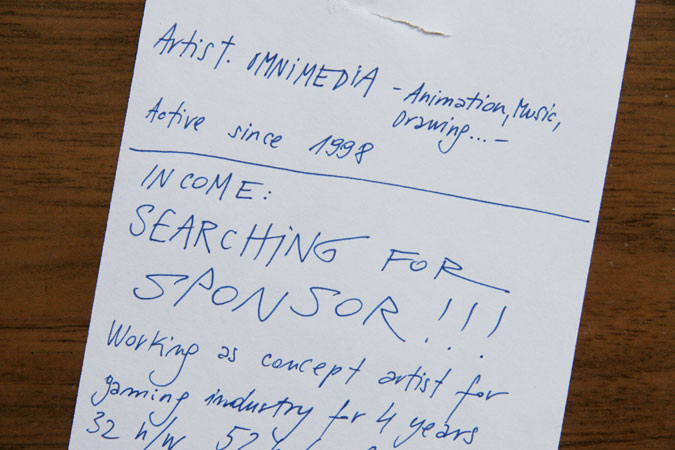 Artist. OMNiMEDiA - Animation, Music,
Drawing... -
Active since 1998
INCOME:
SEARCHiNG FOR
SPONSOR!!!
Working as concept artist for
gaming industry for 4 years
32 h/w 52